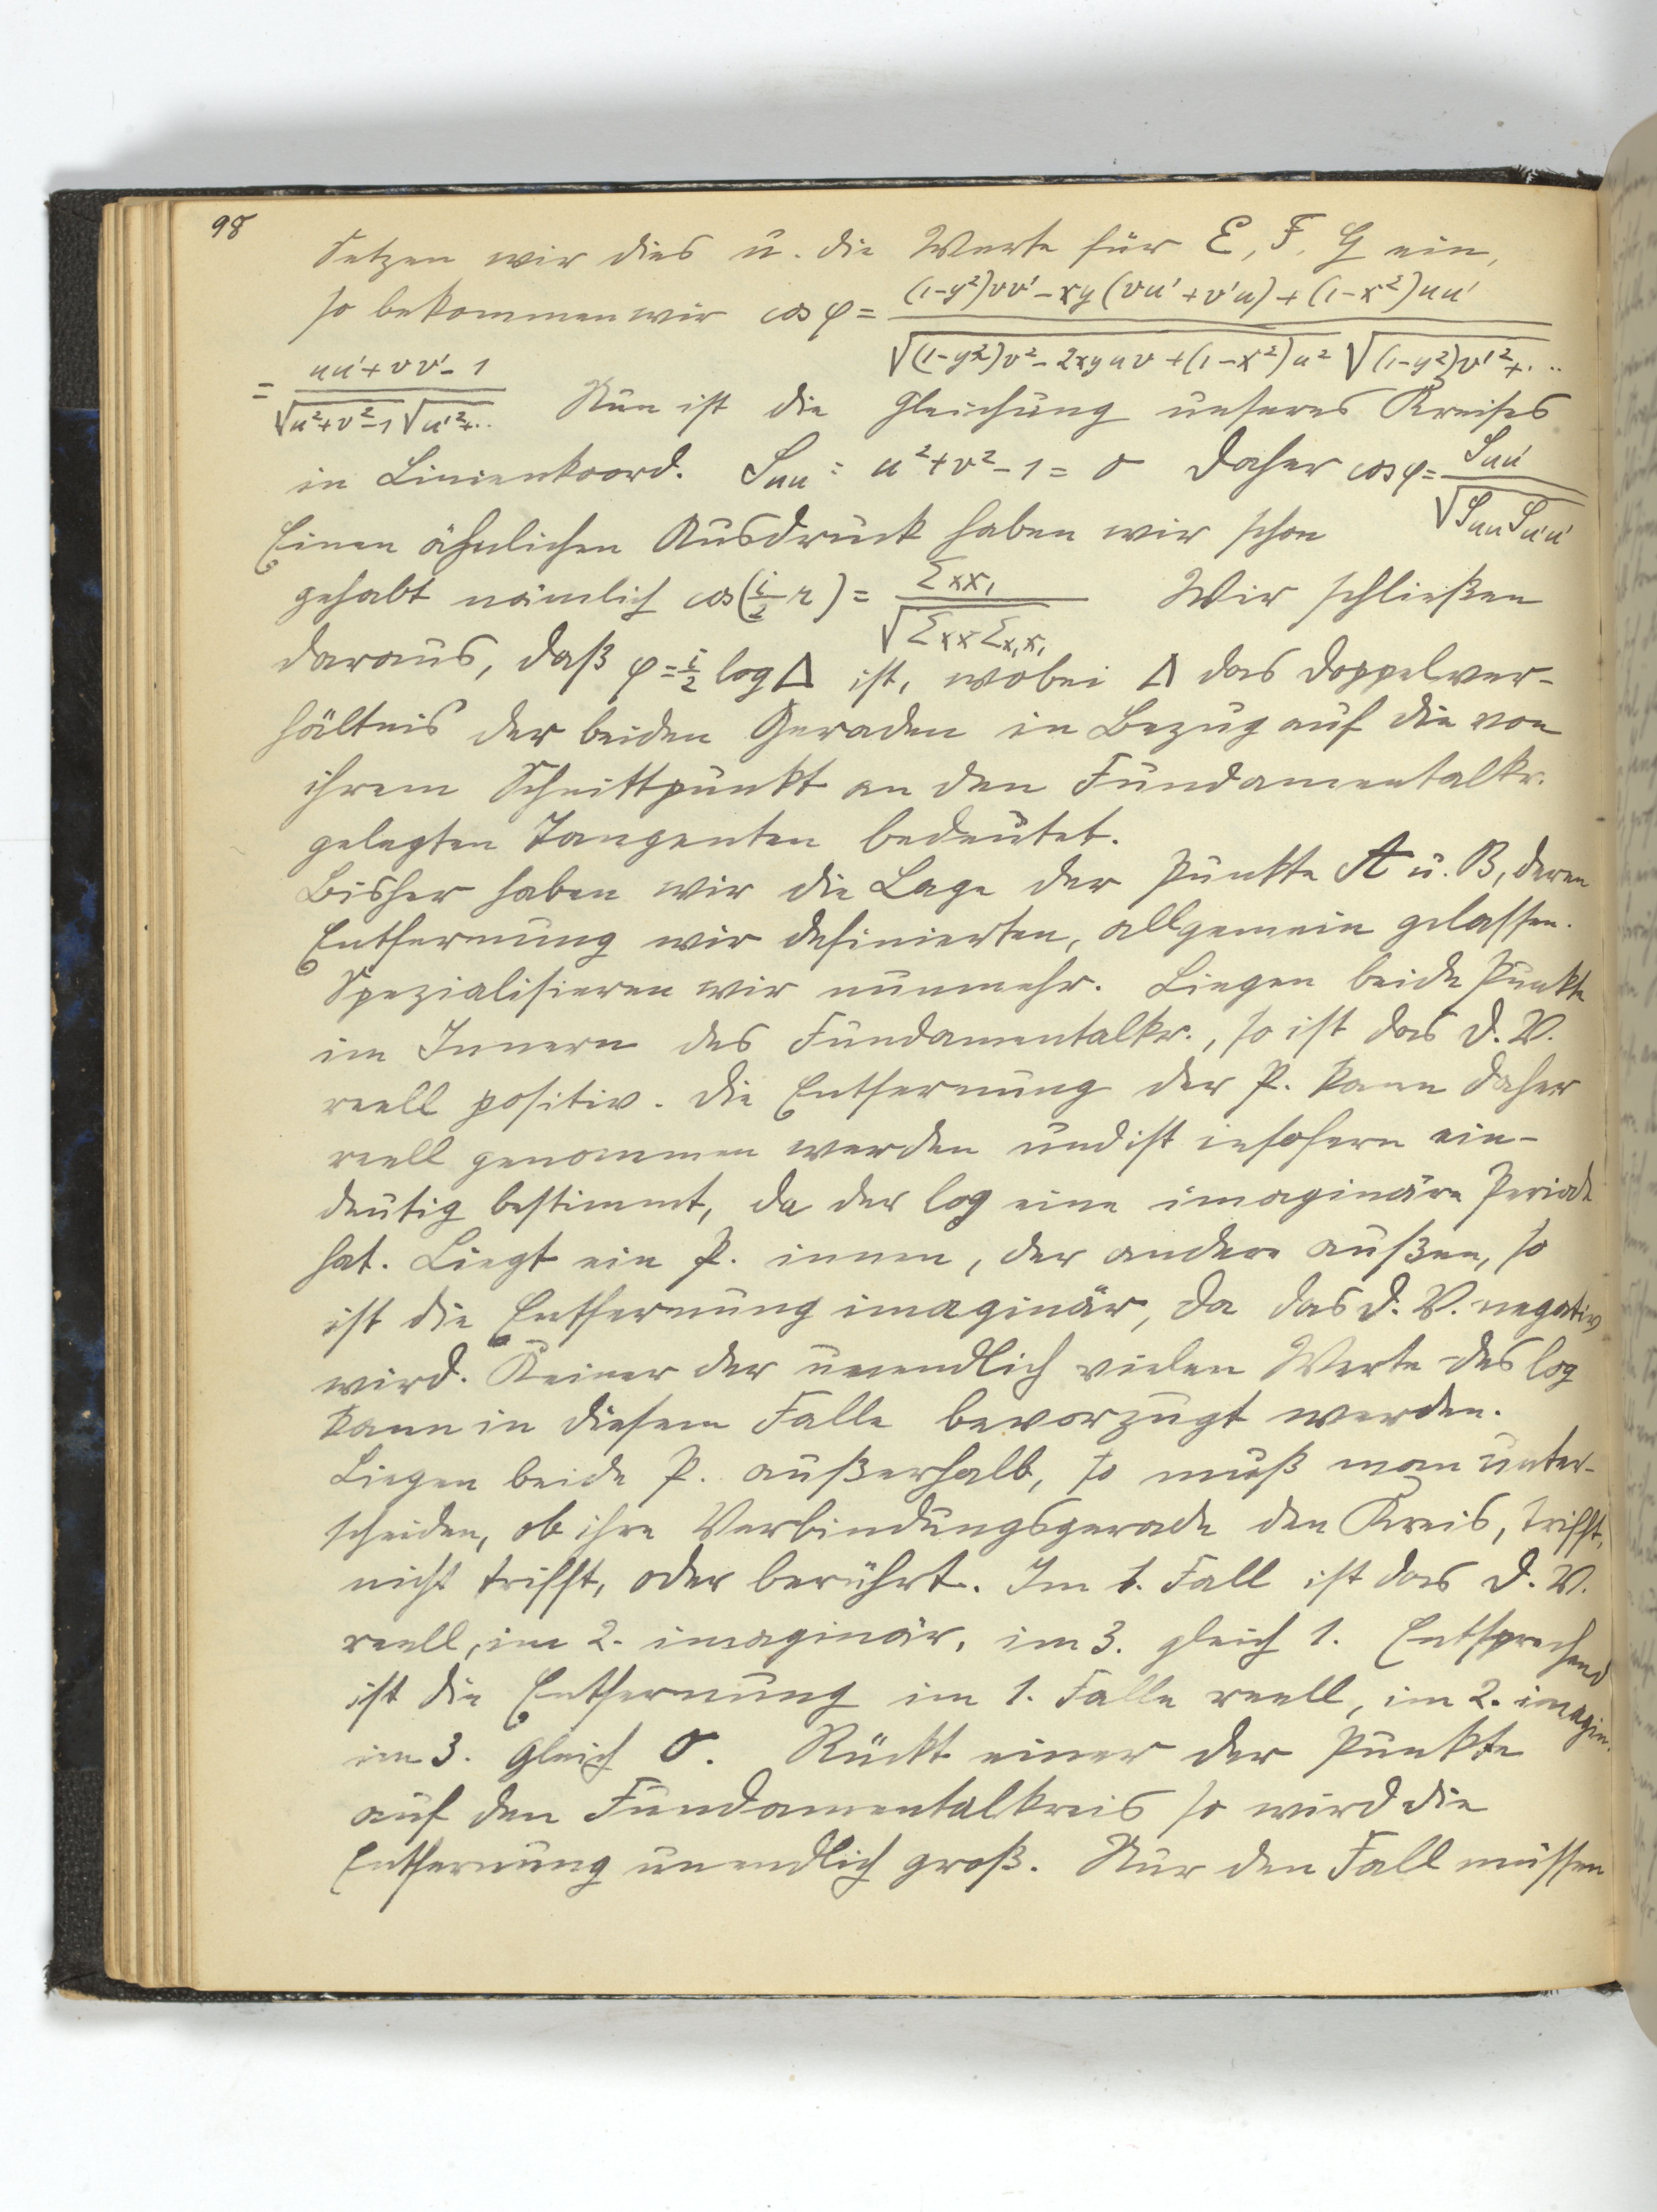 98
Setzen wir dies u. die Werte für E, F, G ein,
so bekommen wir cos φ = ((1-y²)vv' - xy(vu' + v'u) + (1-x²)uu') / (√((1-y²)v² - 2xyuv + (1-x²)u²) √((1-y²)v'² + ...
= (uu' + vv' - 1) / (√(u²+v²-1) √(u'²+..) Nun ist die Gleichung unseres Kreises
in Linienkoord. Suu = u² + v² - 1 = 0 Daher cos φ = Suu' / √(Suu Su'u')
Einen ähnlichen Ausdruck haben wir schon
gehabt nämlich cos(i/2 r) = Σxx₁ / √(Σxx Σx₁x₁) Wir schließen
daraus, daß φ = i/2 log Δ ist, wobei Δ das Doppelver-
hältnis der beiden Geraden in Bezug auf die von
ihrem Schnittpunkt an den Fundamentalkr.
gelegten Tangenten bedeutet.
Bisher haben wir die Lage der Punkte A u. B, deren
Entfernung wir definierten, allgemein gelassen.
Spezialisieren wir nunmehr. Liegen beide Punkte
im Innern des Fundamentalkr., so ist das D. V.
reell positiv. Die Entfernung der P. kann daher
reell genommen werden und ist insofern ein-
deutig bestimmt, da der log eine imaginäre Periode
hat. Liegt ein P. innen, der andere außen, so
ist die Entfernung imaginär, da das D. V. negativ
wird. Keiner der unendlich vielen Werte des log
kann in diesem Falle bevorzugt werden.
Liegen beide P. außerhalb, so muß man unter-
scheiden, ob ihre Verbindungsgerade den Kreis, trifft,
nicht trifft, oder berührt. Im 1. Fall ist das D. V.
reell, im 2. imaginär, im 3. gleich 1. Entsprechend
ist die Entfernung im 1. Falle reell, im 2. imagin.
im 3. gleich 0. Rückt einer der Punkte
auf den Fundamentalkreis so wird die
Entfernung unendlich groß. Nur den Fall müssen